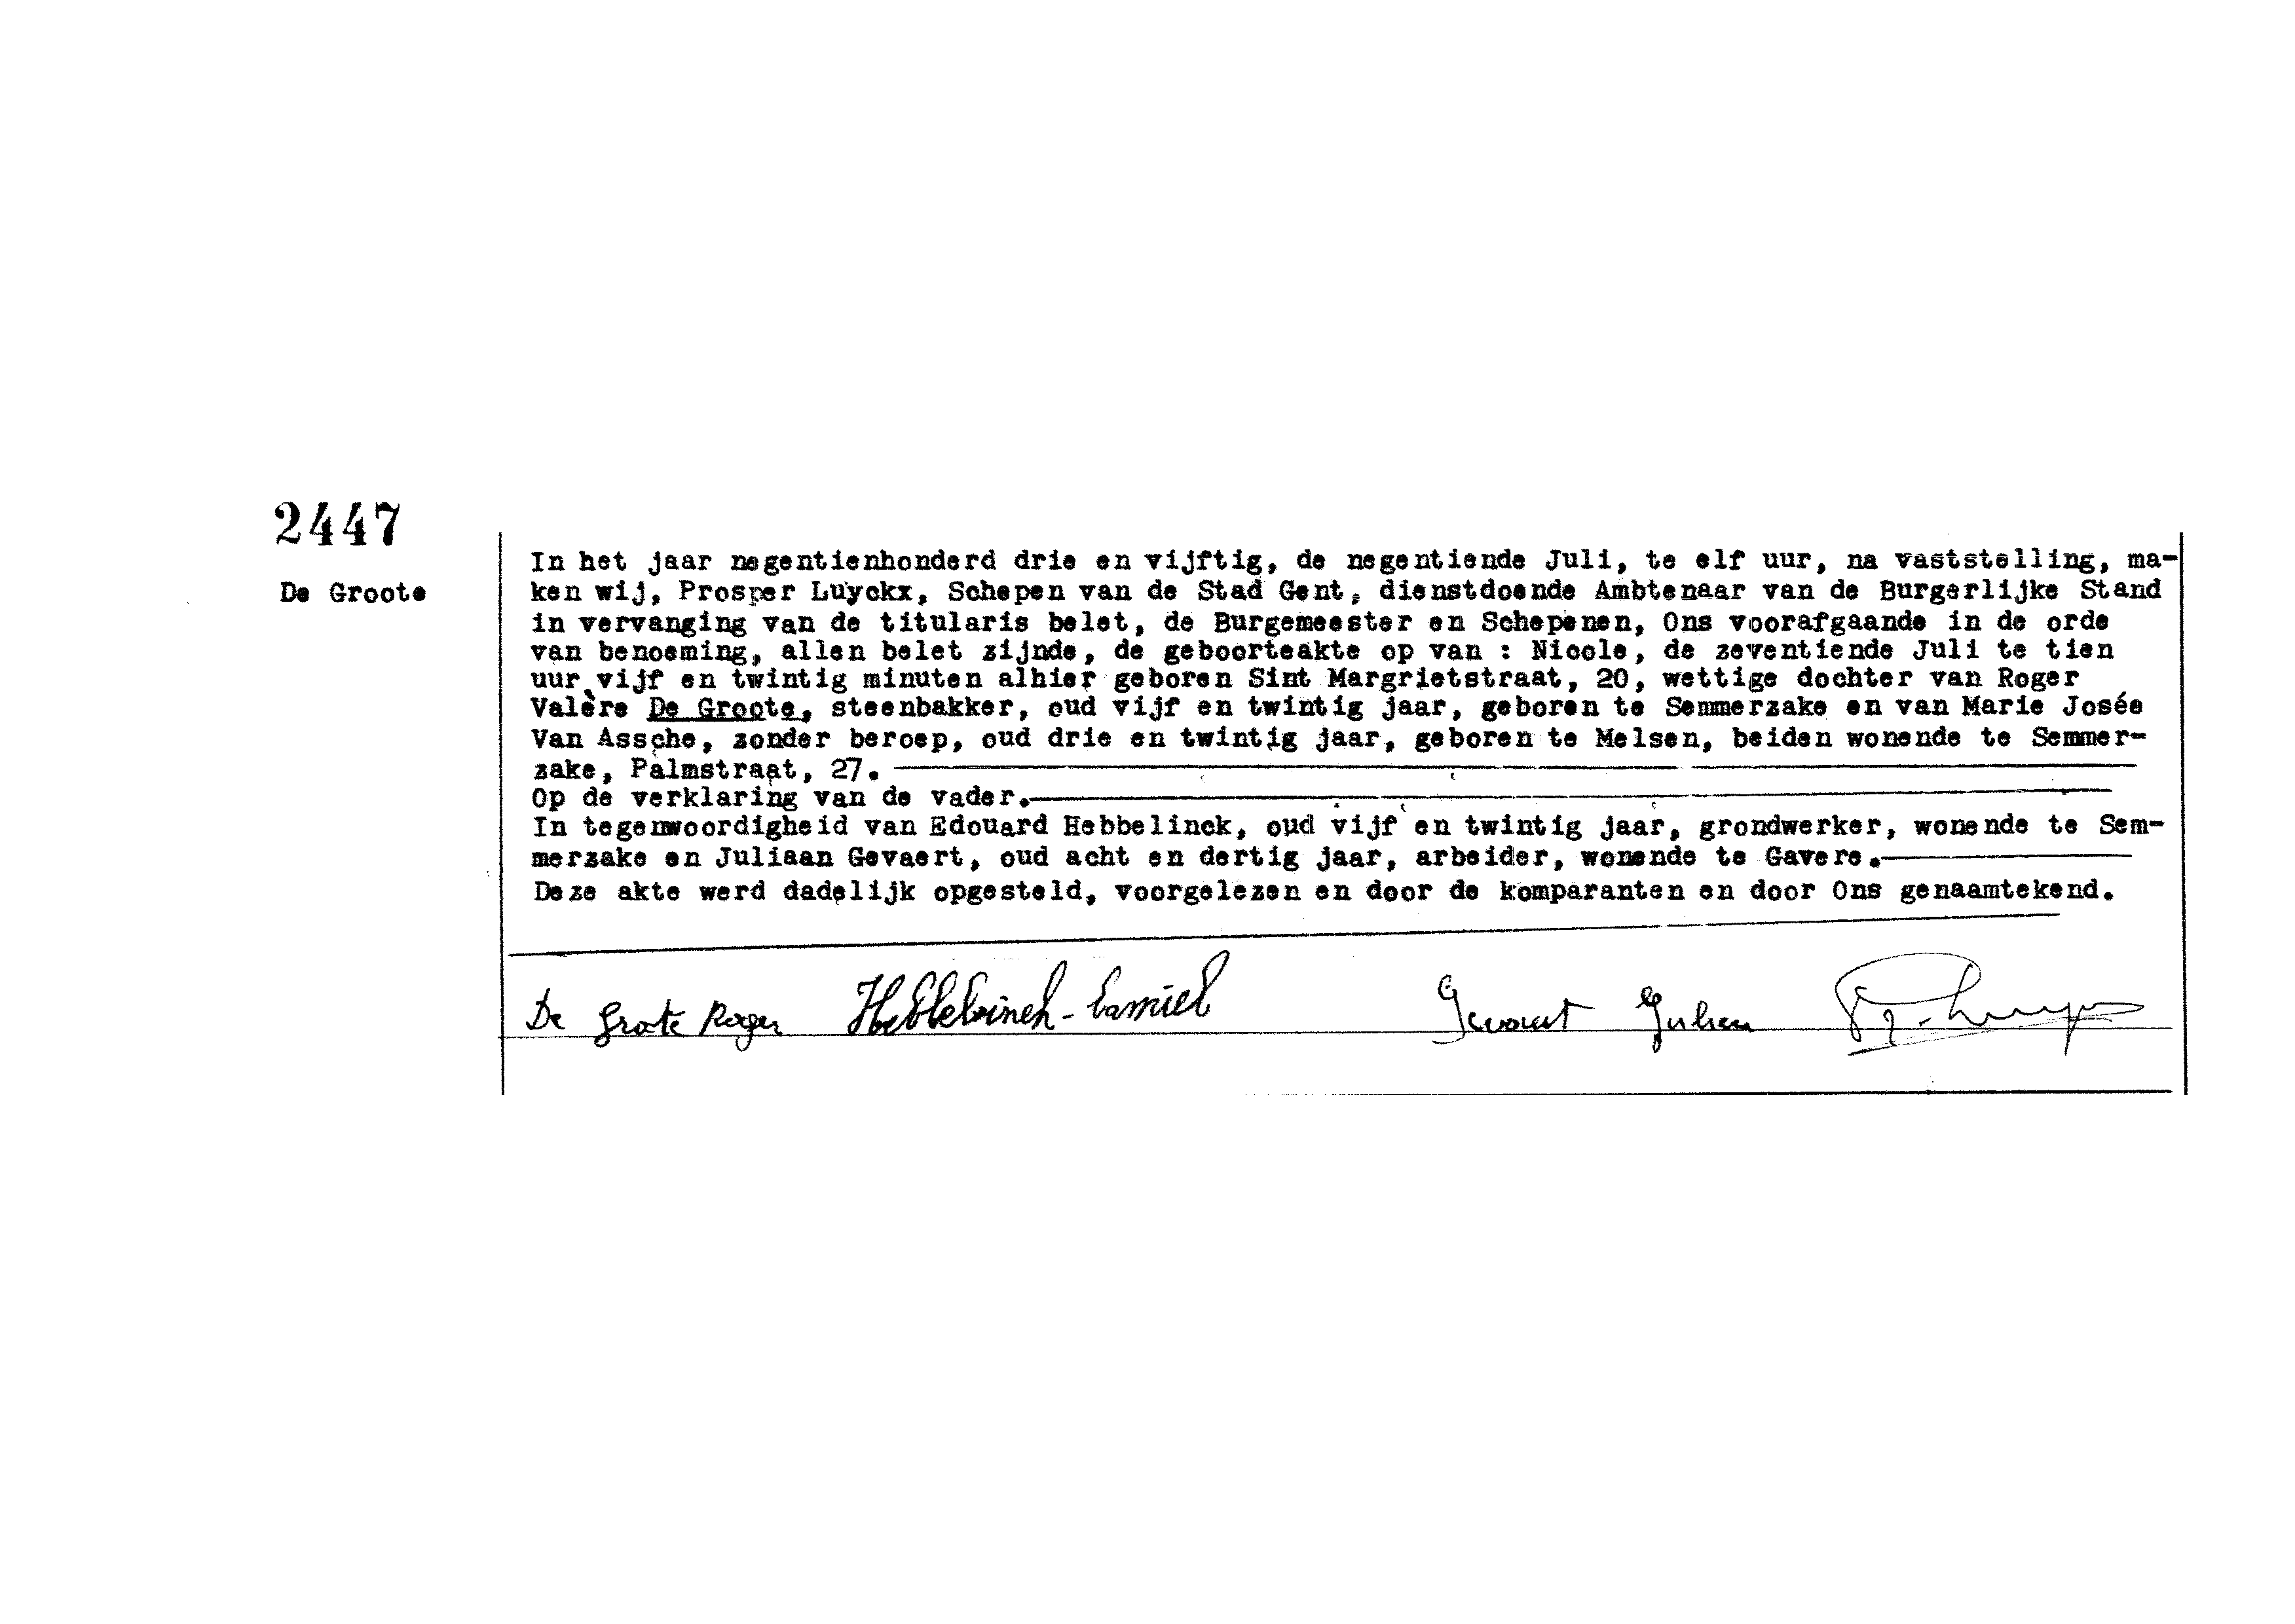 2447
De Groote
In het jaar negentienhonderd drie en vijftig, de negentiende Juli, te elf uur, na vaststelling, ma-
ken wij, Prosper Luyckx, Schepen van de Stad Gent, dienstdoende Ambtenaar van de Burgerlijke Stand
in vervanging van de titularis belet, de Burgemeester en Schepenen, Ons voorafgaande in de orde
van benoeming, allen belet zijnde, de geboorteakte op van : Nicole, de zeventiende Juli te tien
uur vijf en twintig minuten alhier geboren Sint Margrietstraat, 20, wettige dochter van Roger
Valère De Groote, steenbakker, oud vijf en twintig jaar, geboren te Semmerzake en van Marie Josée
Van Assche, zonder beroep, oud drie en twintig jaar, geboren te Melsen, beiden wonende te Semmer-
zake, Palmstraat, 27.
Op de verklaring van de vader.
In tegenwoordigheid van Edouard Hebbelinck, oud vijf en twintig jaar, grondwerker, wonende te Sem-
merzake en Juliaan Gevaert, oud acht en dertig jaar, arbeider, wonende te Gavere.
Deze akte werd dadelijk opgesteld, voorgelezen en door de komparanten en door Ons genaamtekend.
De Groote Roger Gevaert Julien